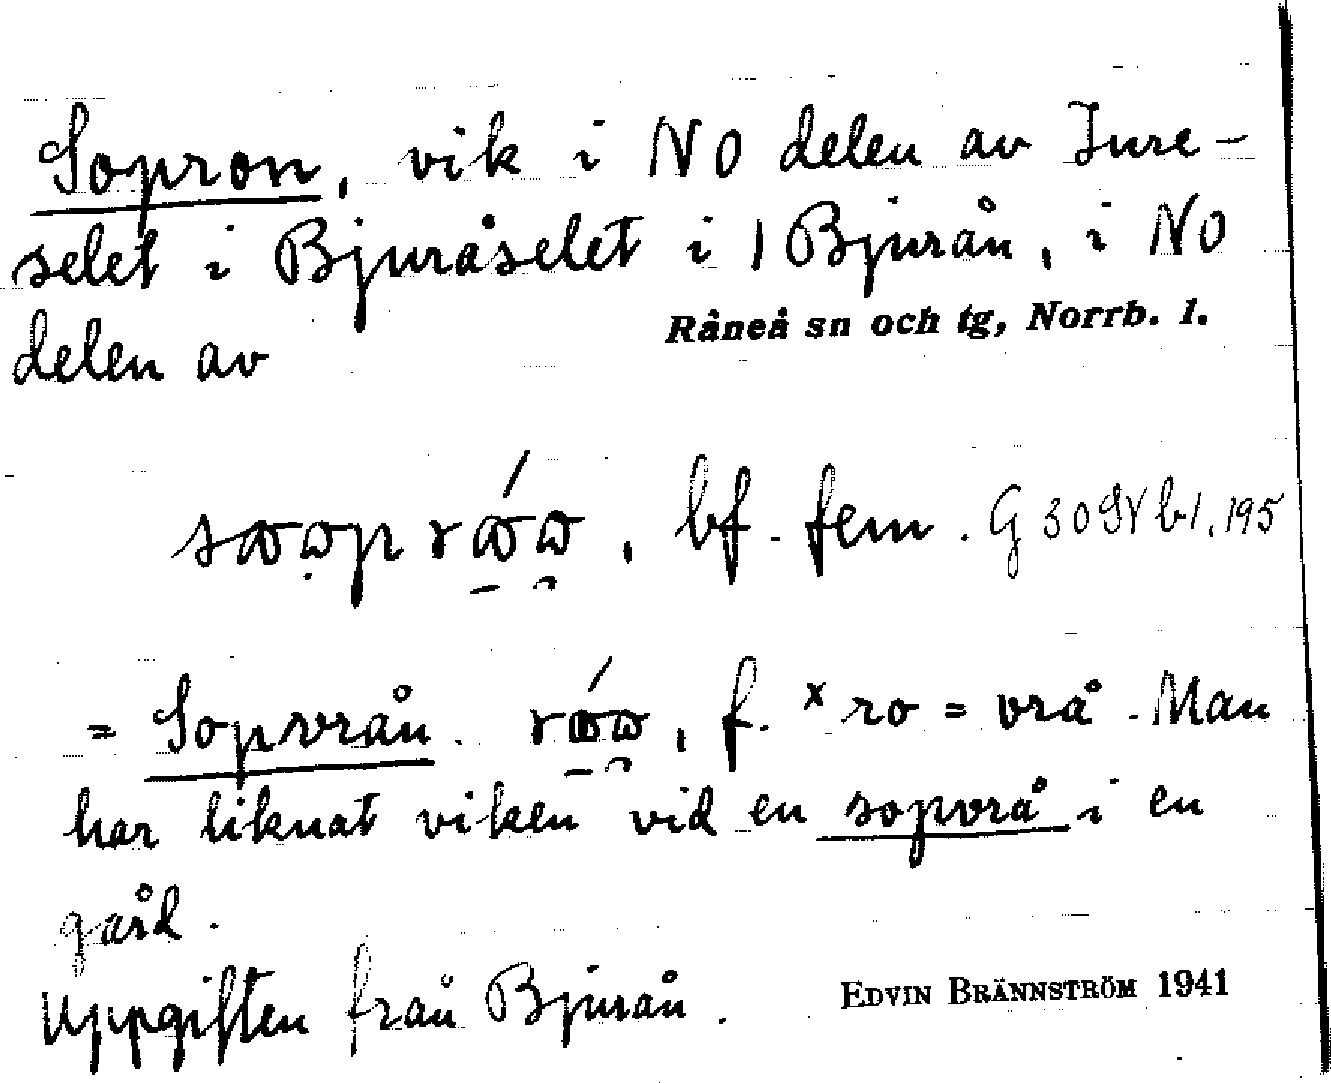 Sopron, vik i NO delen av Jure-
selet i Bjuråselet i Bjurån, i NO
delen av
Råneå sn och tg, Norrb. l.
bf. fem. G 30 SV bl. 195
= Sopvrån. f. ˣro = vrå. Man
har liknat viken vid en sopvrå i en
gård.
Uppgiften från Bjurån.
EDVIN BRÄNNSTRÖM 1941